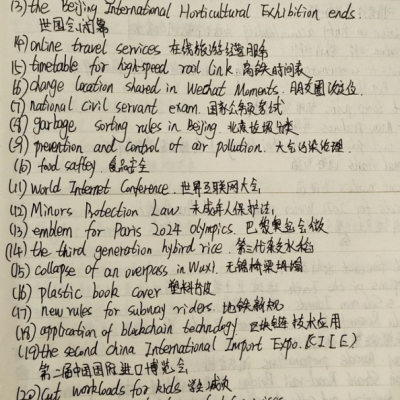 (3) the Beijing International Horticultural Exhibition ends
世园会闭幕
(4) online travel services 在线旅游经营服务
(5) timetable for high-speed rail link. 高铁时间表
(6) change location shared in Wechat Moments. 朋友圈改定位
(7) national civil servant exam. 国家公务员考试
(8) garbage sorting rules in Beijing. 北京垃圾分类
(9) prevention and control of air pollution. 大气污染治理
(10) food saftey. 食品安全
(11) World Internet Conference. 世界互联网大会
(12) Minors Protection Law 未成年人保护法
(13) emblem for Paris 2024 olympics. 巴黎奥运会徽
(14) the third generation hybird rice. 第三代杂交水稻
(15) collapse of an overpass in Wuxi. 无锡桥梁坍塌
(16) plastic book cover 塑料书皮
(17) new rules for subway riders. 地铁新规
(18) application of blockchain technology 区块链技术应用
(19) the second China International Import Expo. (CIIE)
第二届中国国际进口博览会
(20) Cut workloads for kids 学生减负